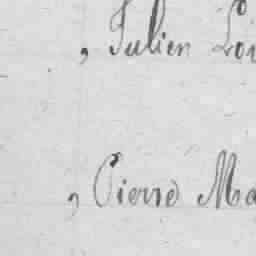 , Julien Lou
, Pierre Ma